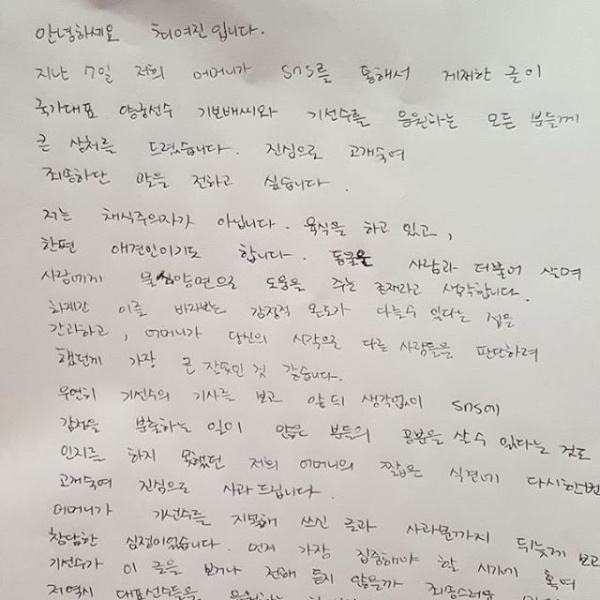 안녕하세요 최여진입니다.
지난 7일 저희 어머니가 SNS를 통해서 게재한 글이
국가대표 양궁선수 기보배씨와 기선수를 응원하는 모든 분들께
큰 상처를 드렸습니다. 진심으로 고개숙여
죄송하단 말을 전하고 싶습니다.
저는 채식주의자가 아닙니다. 육식을 하고 있고,
한편 애견인이기도 합니다. 동물은 사람과 더불어 살며
사람에게 물심양면으로 도움을 주는 존재라고 생각합니다.
하지만 이를 바라보는 감정적 온도가 다를수 있다는 점을
간과하고, 어머니가 당신의 시각으로 다른 사람들을 판단하려
했던게 가장 큰 잘못인 것 같습니다.
우연히 기선수의 기사를 보고 앞 뒤 생각없이 SNS에
감정을 분출하는 일이 많은 분들의 공분을 살 수 있다는 걸로
인지를 하지 못했던 저희 어머니의 짧은 식견에 다시한번
고개숙여 진심으로 사과 드립니다.
어머니가 기선수를 지목해 쓰신 글과 사과문까지 뒤늦게 보고
참담한 심정이었습니다. 먼저 가장 집중해야 할 시기에 혹여
기선수가 이 글을 보거나 전해 듣지 않을까 죄송스러운
저역시 대표선수들을